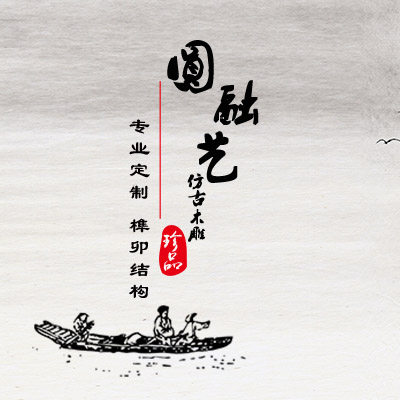 圆融艺
仿古木雕
珍品
专业定制 榫卯结构